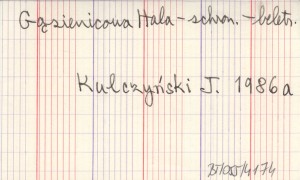 Gąsienicowa Hala - schron. - beletr.
Kulczyński J. 1986a
BT/OSS/4174